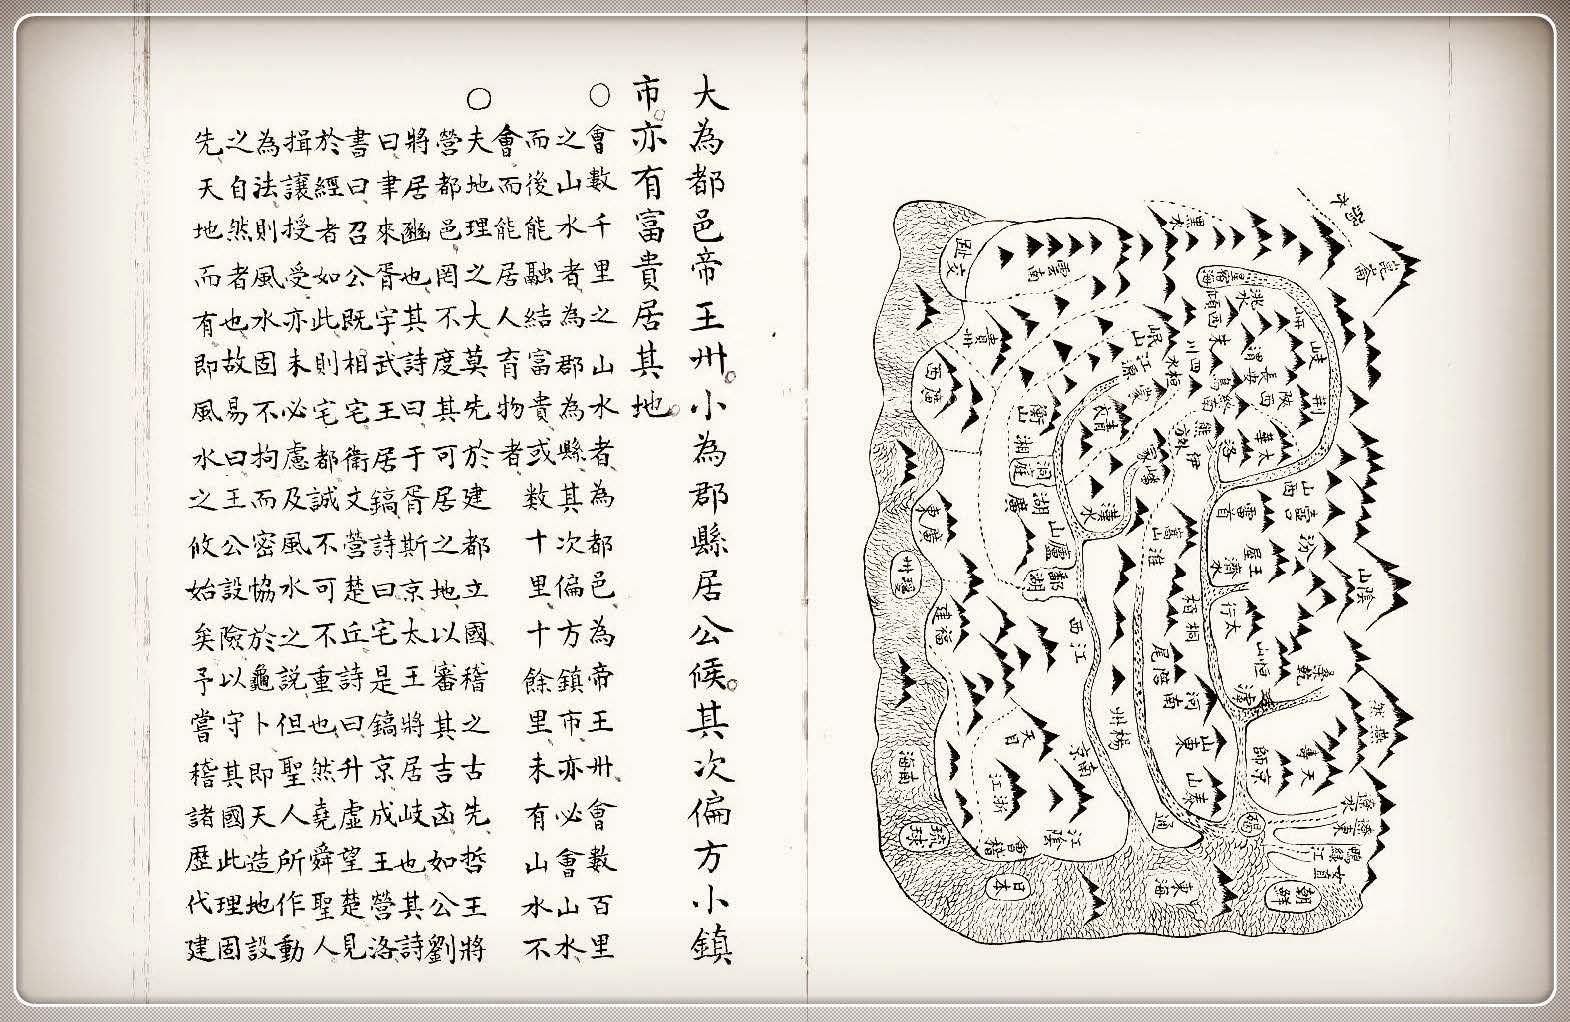 崑崙
弱水
黑水
雲南
交趾
星宿海
洮水
西傾
岍
岐
荆
岷山
江源
貴州
廣西
朱
四川
桓水
渭
長安
陝西
終南
蒙
衡山
湘
洞庭
熊
太華
洛
伊
嶓冢
漢水
湖廣
廣東
瓊州
山西
壺口
雷首
汾
王屋
濟水
嵩山
淮
廬山
鄱湖
陰山
太行
桐栢
江西
福建
恒山
陪尾
河南
燕然
天壽
京師
山東
泰山
楊州
南京
天目
浙江
海南
遼水
遼東
碣
通
江陰
會稽
琉球
鴨綠江
女直
朝鮮
東海
日本
大為都邑帝王州小為郡縣居公候其次偏方小鎮
市亦有富貴居其地
○會數千里之山水者為都邑為帝王州會數百里
之山水者為郡為縣其次偏方鎮市亦必會山水
而後能融結富貴或数十里十餘里未有山水不
會而能居人育物者
○夫地理之大莫先於建都立國稽之古先哲王將
營都邑罔不度其可居之地以審其吉凶如公劉
將居豳也其詩曰于胥斯京太王將居岐也其詩
曰聿來胥宇武王居鎬詩曰宅是鎬京成王營洛
書曰召公既相宅衛文營楚丘詩曰升虛望楚見
於經者如此則宅都誠不可不重也然堯舜聖人
揖讓授受亦未必慮及風水之説但聖人所作動
為法則風水固不拘而密協於龜卜即天造地設
之自然者也故易曰王公設險以守其國此理固
先天地而有即風水之攸始矣予嘗稽諸歷代建